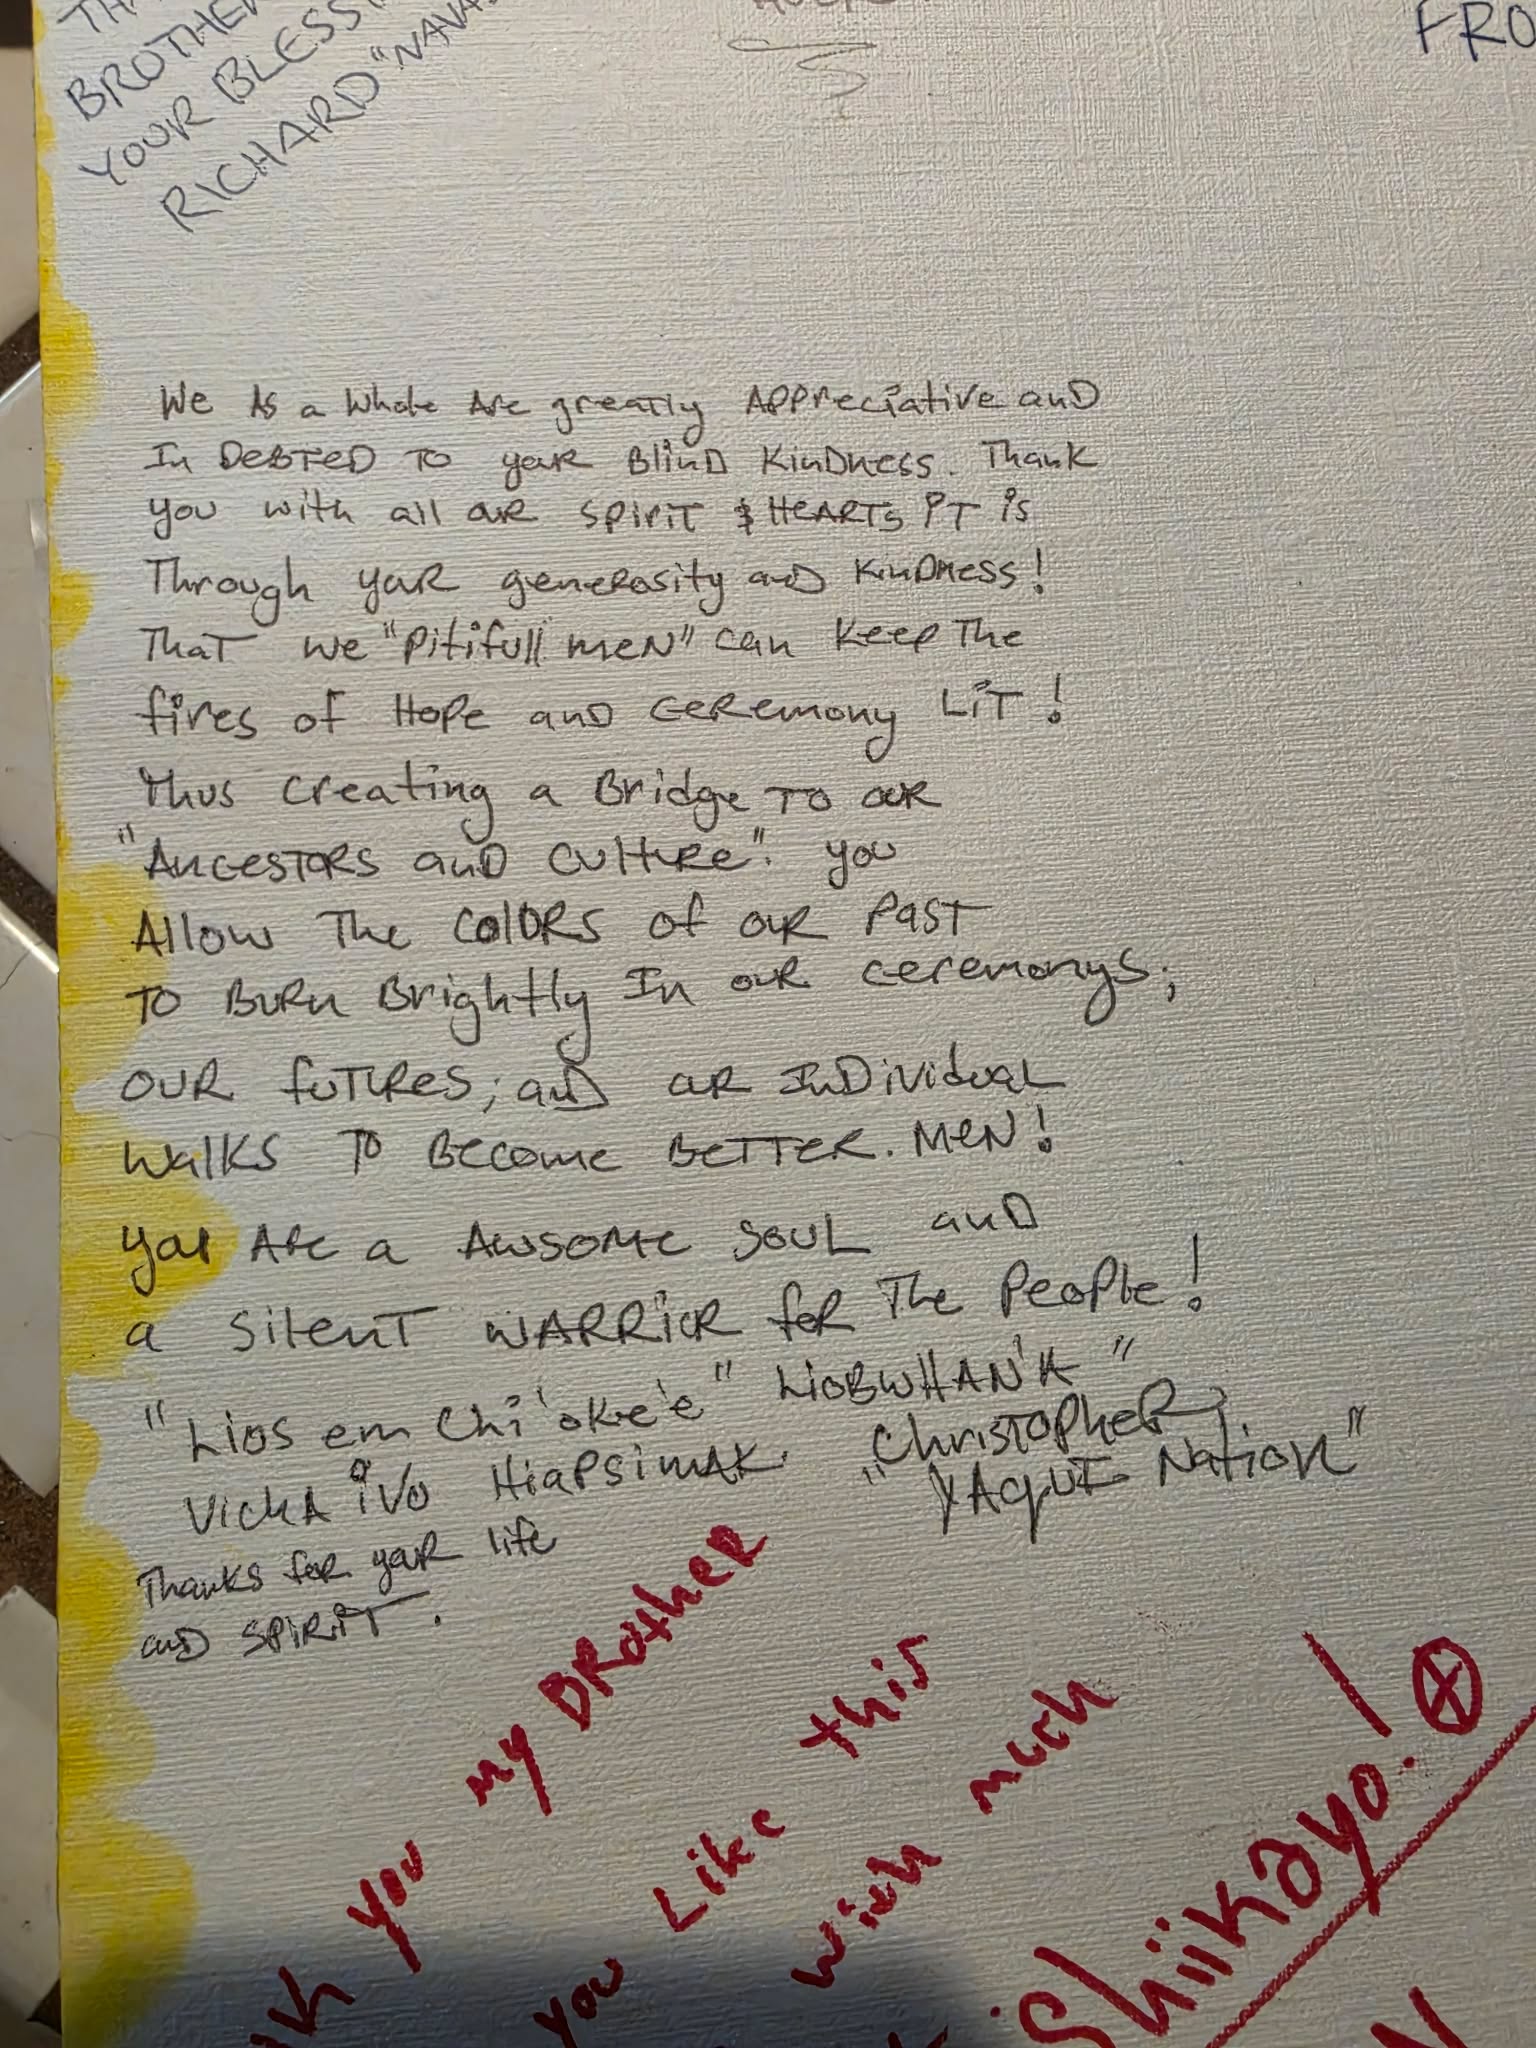 BROTHE
YOUR BLESS
RICHARD "NAVA
FRO
We As a Whole Are greatly Appreciative and
In Debted To your Blind Kindness. Thank
you with all our spirit & Hearts iT is
Through your generosity and kindness!
That we "Pitifull men" can keep The
fires of Hope and ceremony LiT!
Thus creating a Bridge To our
"Ancestors and culture". you
Allow The colors of our Past
To Burn Brightly In our ceremonys;
our futures; and our Individual
walks To Become Better. Men!
you Are a Awsome soul and
a silent warrior for The People!
"Lios em Chi'oke'e" LIOBWHAN'A"
Vicha ivo Hiapsimak. "Christopher
Yaqui Nation"
Thanks for your life
and spirit.
you my Brother
you Like this
wish much
Shiikayo!